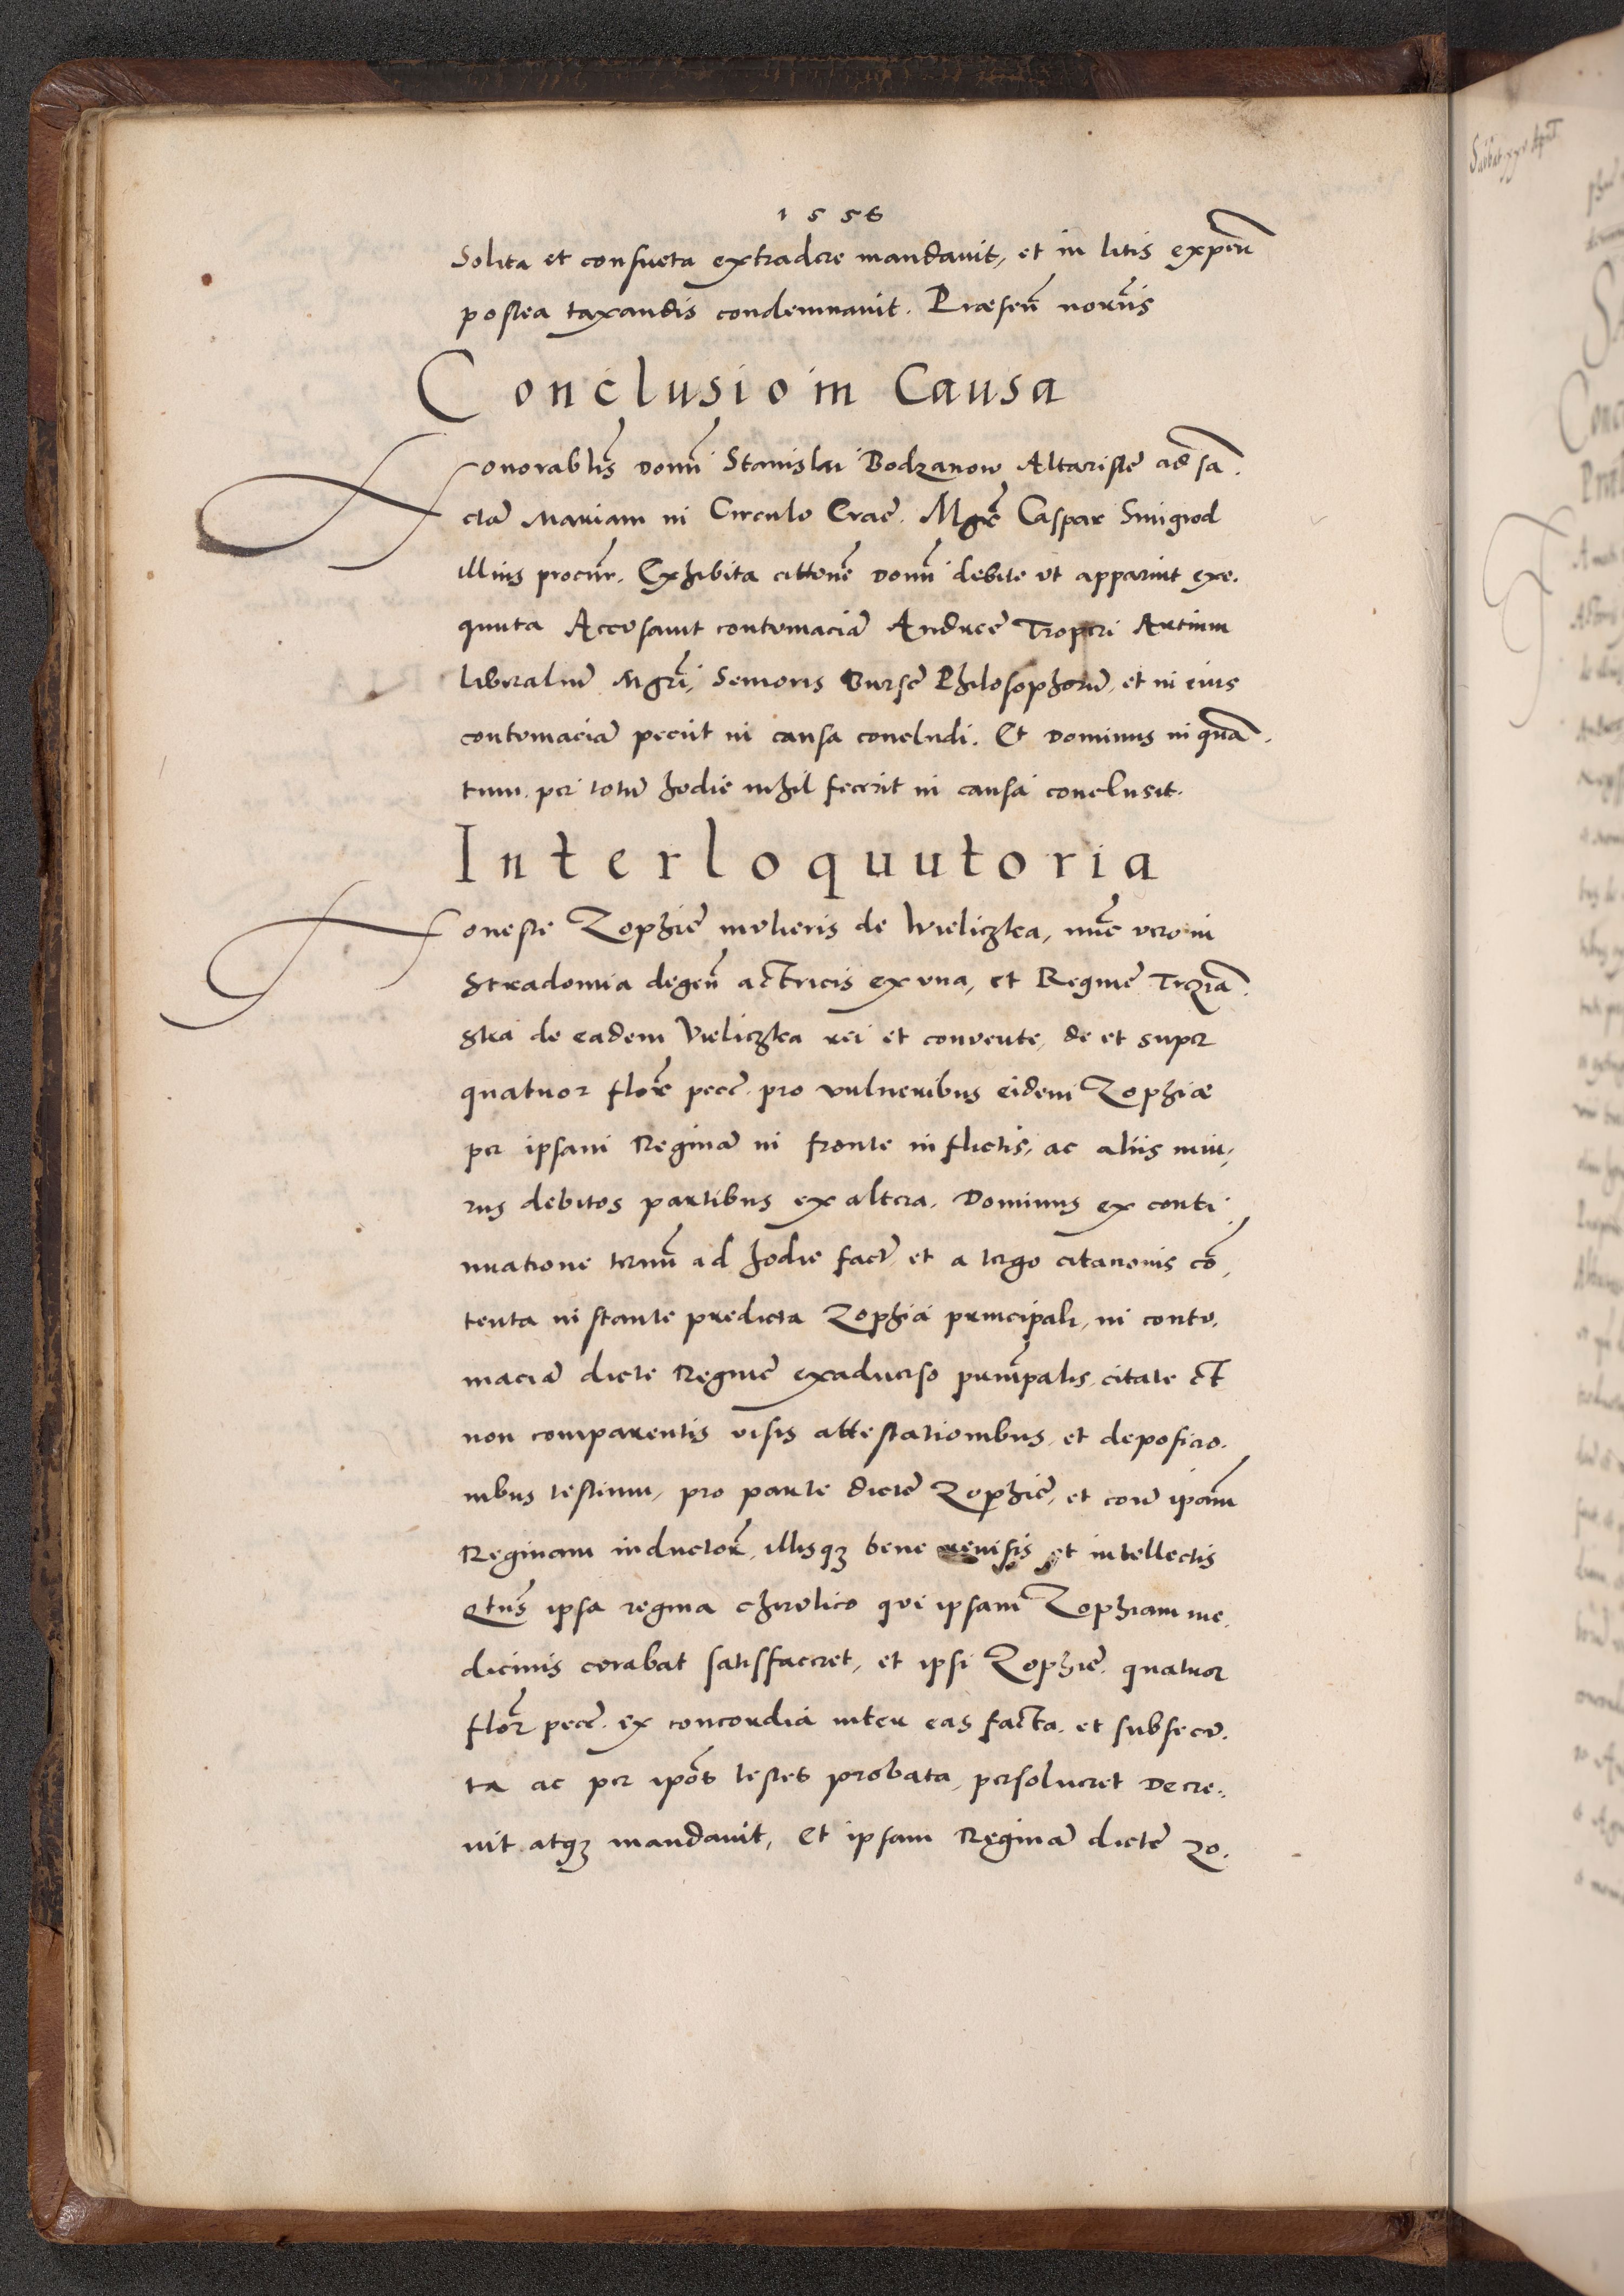 1556
Solita et consueta extradere mandavit, et in litis expen̄
postea taxandis condemnavit. Præsen̄ notarijs
Conclusio in Causa
Honorabilis domi͂ Stanislai Bodzanow Altariste͂ ad san.
cta͂ Mariam in Circulo Crac͂. Mgr͂ Caspar Smigrod
illius procur͂. Exhibita citt͂one͂ domi͂ debite ut apparuit exe.
quuta Accusavit contumacia͂ Andree͂ Troperi Artium
liberaliu͂ Mgri͂, Senioris Burse͂ Philosophoru͂, et in eius
contumacia͂ peciit in causa concludi. Et Dominus in qua͂.
tum per totu͂ hodie nihil fecerit in causa conclusit.
Interloquutoria
Honeste Zophie͂ mulieris de Wieliczka, nu͂c vero in
Stradomia degen͂ actricis ex una, et Regine͂
de eadem Vieliczka rei et convente, de et super
quatuor flore͂ pecc͂. pro vulneribus eidem Zophiæ
per ipsam Regina͂ in fronte inflictis, ac aliis iniu,
rus debitos partibus ex altera. Dominus ex conti
nuatione termi͂ ad hodie fact͂. et a tergo citationis co͂,
tenta instante predicta Zophia principali, in contu,
macia͂ dicte Regine͂ exadverso principalis, citate et
non comparentis visis attestationibus, et deposicio.
nibus testium, pro parte dicte͂ Zophie͂, et contra ipsam
Reginam inductor͂, illisq3 bene revisis et intellectis
Qtus͂ ipsa regina chirolico qui ipsam Zophiam me.
dicinis curabat satisfaceret, et ipsi Zophie͂. quatuor
flor͂ pecc͂. ex concordia inter eas facta. et subsecu͂.
ta ac per ipo͂s testes probata, persolueret Decre.,
uit atq3 mandavit, Et ipsam Regina͂ dicte͂ Zo.
Sabbat xxv Apr͂